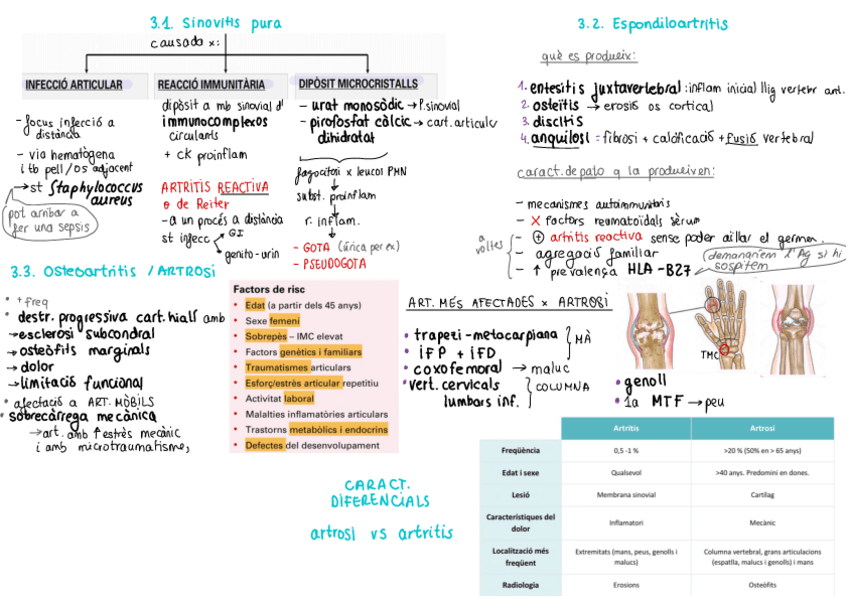 3.1. Sinovitis pura
causada x:
INFECCIÓ ARTICULAR
- focus infecció a
distància
- via hematògena
i tb pell/os adjacent
→ st Staphylococcus
aureus
pot arribar a
fer una sepsis
REACCIÓ IMMUNITÀRIA
dipòsit a mb sinovial d'
immunocomplexos
circulants
+ ck proinflam
ARTRITIS REACTIVA
o de Reiter
- a un procés a distància
st infecc
GI
genito-urin
DIPÒSIT MICROCRISTALLS
- urat monosòdic → l. sinovial
- pirofosfat càlcic → cart. articular
dihidratat
fagocitosi x leucos PMN
subst. proinflam
r. inflam.
- GOTA (úrica per ex)
- PSEUDOGOTA
3.2. Espondiloartritis
què es produeix:
1. entesitis juxtavertebral: inflam inicial llig vertebr ant.
2. osteïtis → erosió os cortical
3. discitis
4. anquilosi = fibrosi + calcificació + fusió vertebral
caract. de pato q la produeixen:
- mecanismes autoimmunitaris
- X factors reumatoïdals sèrum
a voltes
- + artritis reactiva sense poder aïllar el germen.
- agregació familiar
- ↑ prevalença HLA-B27
demanaríem l'Ag si hi
sospitem
3.3. Osteoartritis / ARTROSI
• + freq
• destr. progressiva cart. hialí amb
→ esclerosi subcondral
→ osteòfits marginals
→ dolor
→ limitació funcional
• afectació a ART. MÒBILS
• sobrecàrrega mecànica
→ art. amb ↑ estrès mecànic
i amb microtraumatismes
Factors de risc
• Edat (a partir dels 45 anys)
• Sexe femeni
• Sobrepès – IMC elevat
• Factors genètics i familiars
• Traumatismes articulars
• Esforç/estrès articular repetitiu
• Activitat laboral
• Malalties inflamatòries articulars
• Trastorns metabòlics i endocrins
• Defectes del desenvolupament
ART. MÉS AFECTADES x ARTROSI
• trapezi-metacarpiana
• IFP + IFD
MÀ
• coxofemoral → maluc
• vert. cervicals
lumbars inf.
COLUMNA
TMC
• genoll
• 1a MTF → peu
CARACT.
DIFERENCIALS
artrosi vs artritis
Artritis Artrosi
Freqüència 0,5 -1 % >20 % (50% en > 65 anys)
Edat i sexe Qualsevol >40 anys. Predomini en dones.
Lesió Membrana sinovial Cartílag
Característiques del
dolor Inflamatori Mecànic
Localització més
freqüent Extremitats (mans, peus, genolls i
malucs) Columna vertebral, grans articulacions
(espatlla, malucs i genolls) i mans
Radiologia Erosions Osteòfits